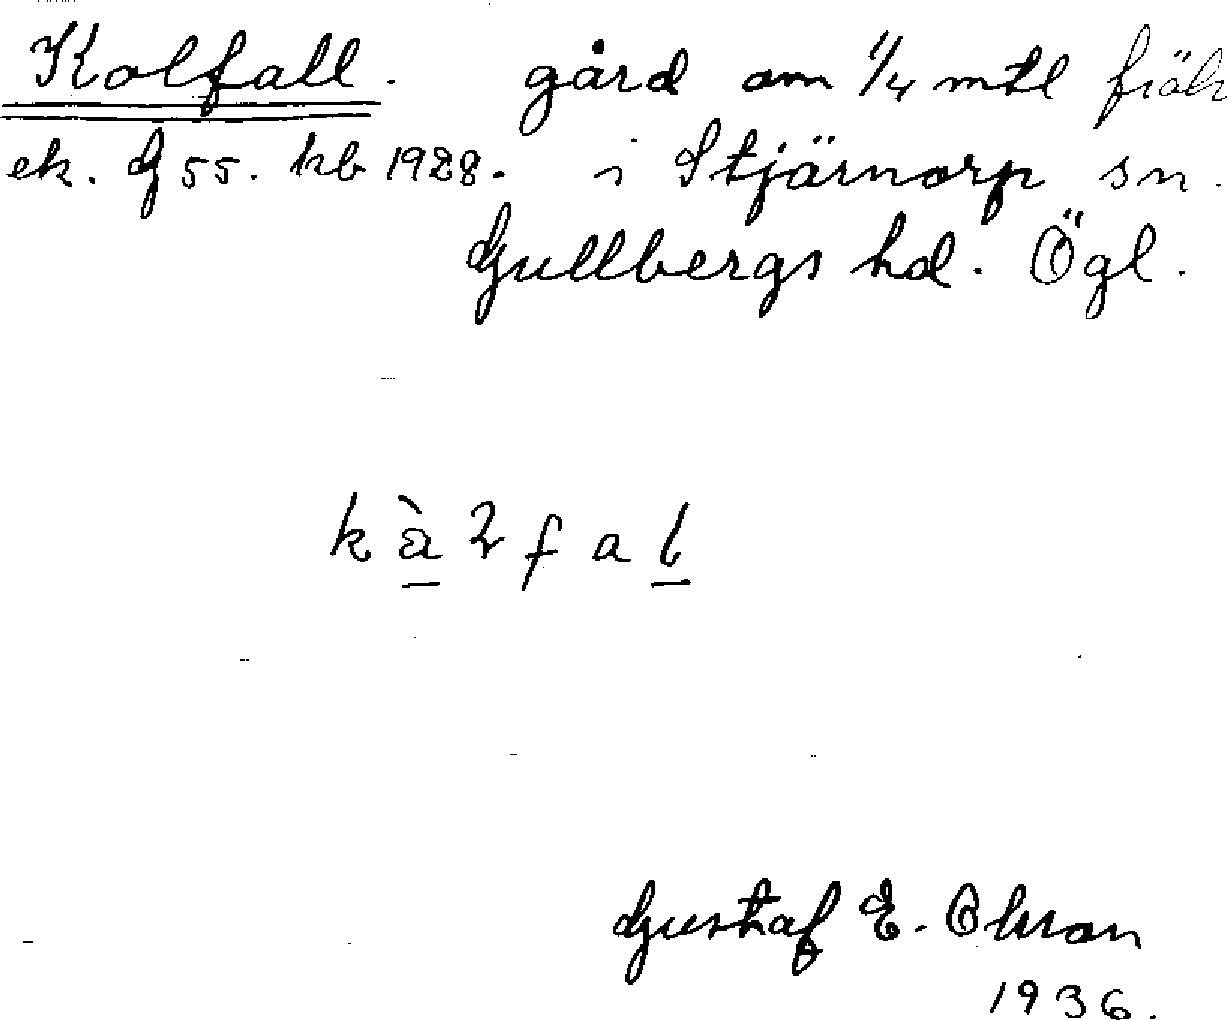 Kolfall. gård om 1/4 mtl
ek. G 55. kb 1928. i Stjärnorp sn.
Gullbergs hd. Ögl.
k à l f a l
Gustaf E. Olsson
1936.